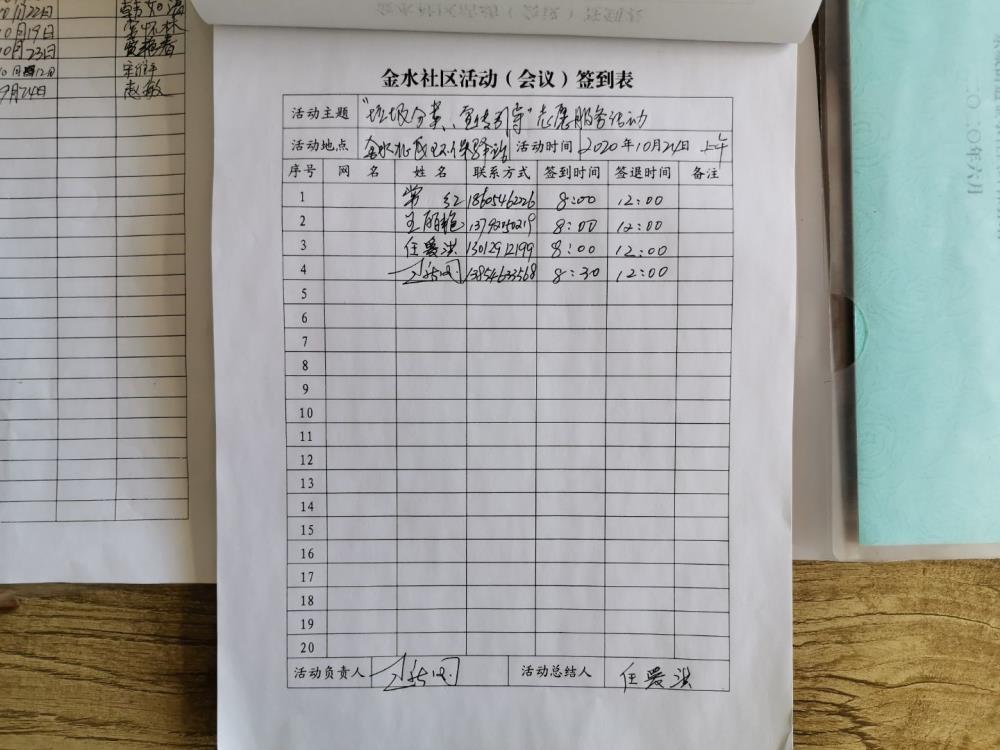 10月22日
10月19日
10月23日
9月24日 赵敏
金水社区活动（会议）签到表
活动主题 "垃圾分类、宣传引导"志愿服务活动
活动地点 金水社区环保驿站 活动时间 2020年10月24日 上午
序号 网 名 姓 名 联系方式 签到时间 签退时间 备注
1 常红 18605462226 8:00 12:00
2 王丽艳 8:00 12:00
3 任爱洪 13012912199 8:00 12:00
4 13854633568 8:30 12:00
5
6
7
8
9
10
11
12
13
14
15
16
17
18
19
20
活动负责人 活动总结人 任爱洪
二〇二〇年六月